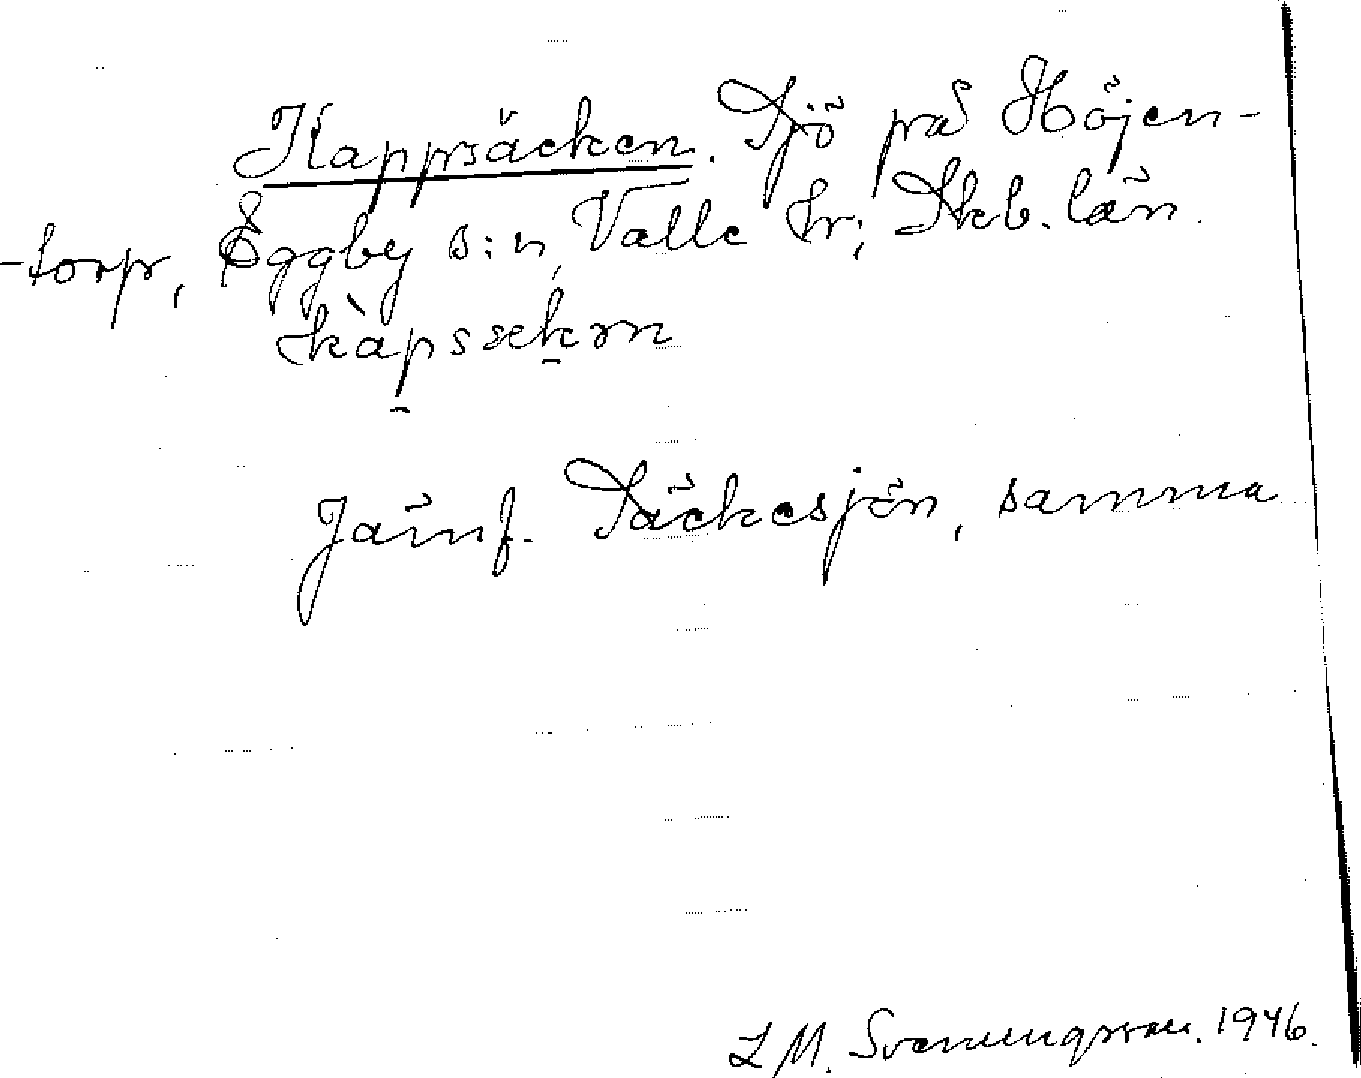 Kappsäcken. Sjö på Höjen-
-torp, Eggby s:n, Valle hr; Skb. län.
kàpssekm
Jämf. Säckesjön, samma
L M. Svenungsson. 1946.